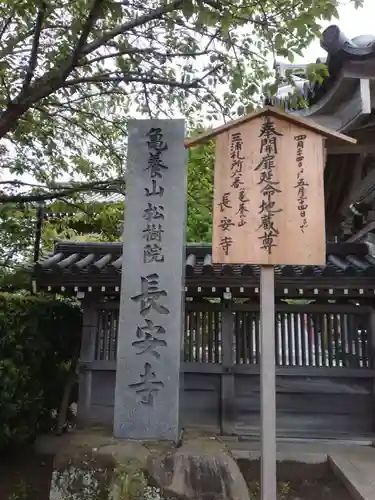 奉開扉延命地蔵尊
四月二十四日ヨリ五月二十四日まで
三浦札所六番 亀養山
長安寺
亀養山 松樹院
長安寺